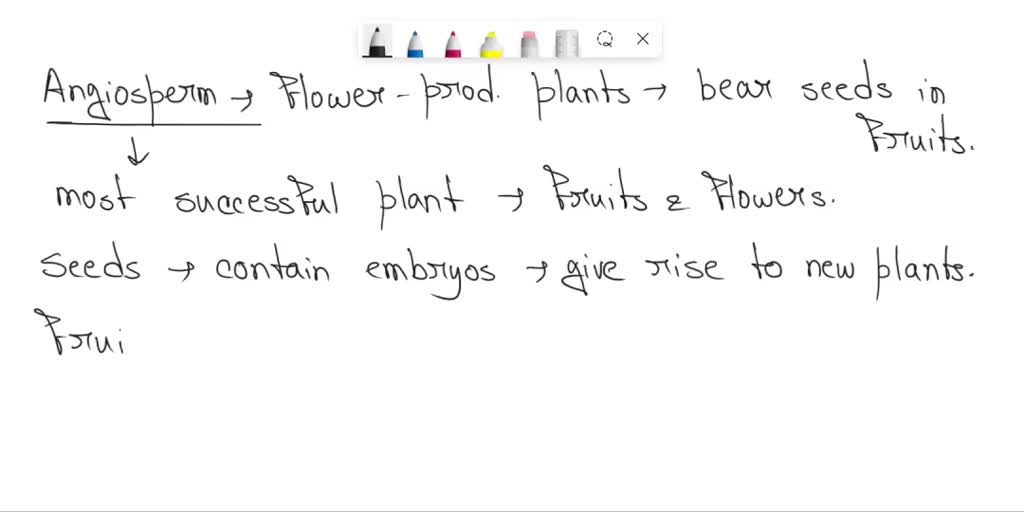 Angiosperm → Flower-prod. plants → bear seeds in
Fruits.
↓
most successful plant → Fruits & Flowers.
seeds → contain embryos → give rise to new plants.
Frui